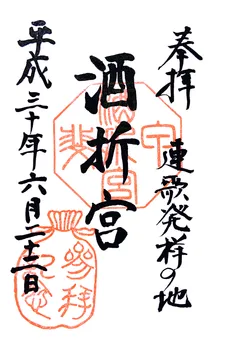 奉拝
連歌発祥の地
酒折宮
平成三十年六月二十二日
參拜
紀念